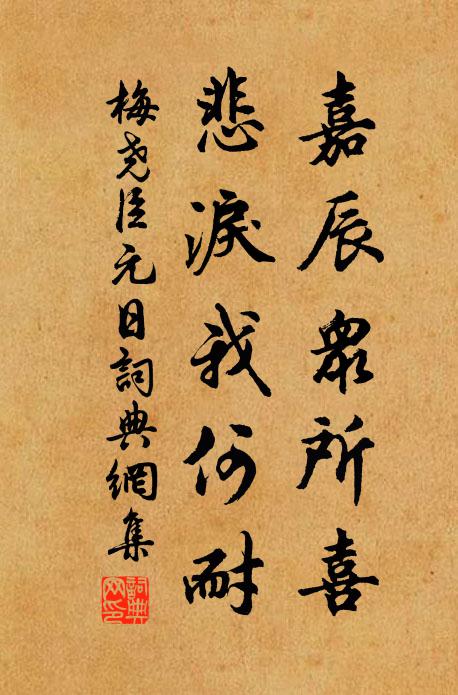 嘉辰衆所喜
悲淚我何耐
梅尧臣元日詞典網集
詞典网印